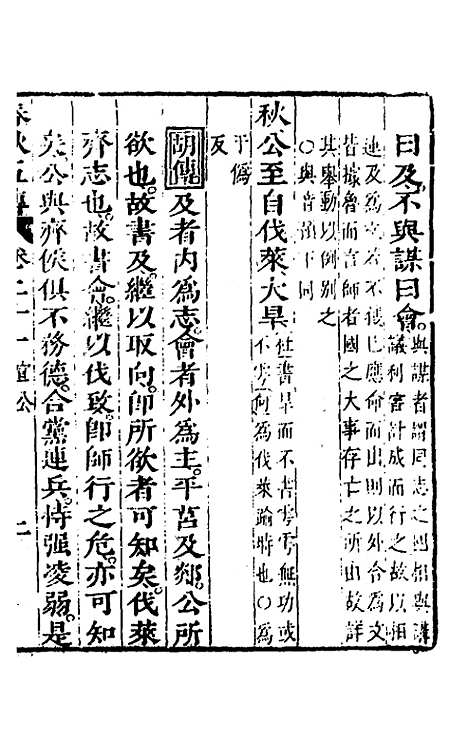 曰及。不與謀曰會。與謀者謂同志之國相與講
議利害計成而行之故以相
連及為文若不獲已應命而出則以外合為文
皆據魯而言師者國之大事存亡之所由故詳
其舉動以例別之
○與音預下同
秋公至自伐萊大旱杜書旱而不書雩雩無功或
不雩何為伐萊踰時也○為
于僞
反
胡傳 及者內為志。會者外為主。平莒及郯。公所
欲也。故書及。繼以取向。即所欲者可知矣。伐萊
齊志也。故書會。繼以伐致。即師行之危。亦可知
矣。公與齊侯俱不務德。合黨連兵。恃强凌弱。是
春秋五傳 卷二十一 宣公 二